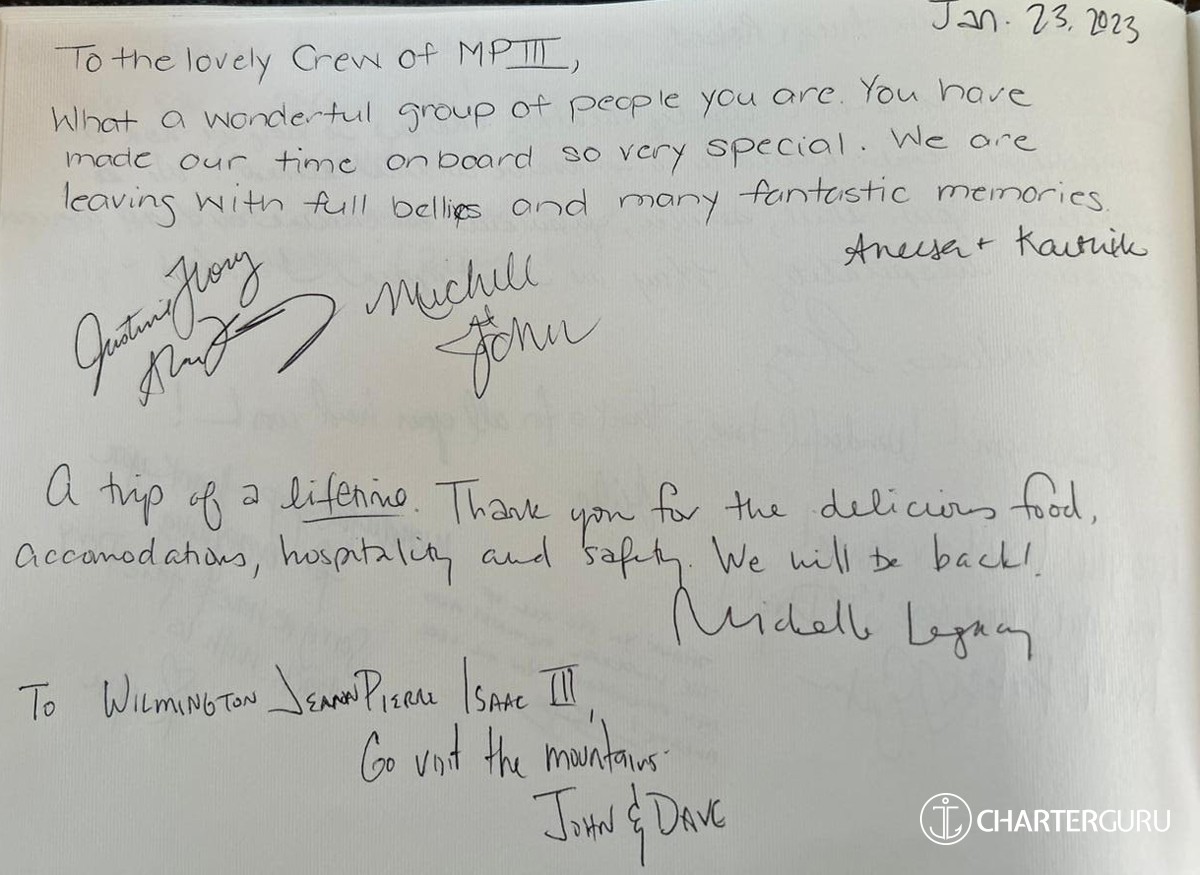 Jan. 23, 2023
To the lovely Crew of MP III,
What a wonderful group of people you are. You have
made our time onboard so very special. We are
leaving with full bellies and many fantastic memories.
Aneesa +
Justine
Michell
John
A trip of a lifetime. Thank you for the delicious food,
accomodations, hospitality and safety. We will be back!
Michelle
To Wilmington JeannPierre Isaac III,
Go visit the mountains.
John & Dave
CHARTERGURU